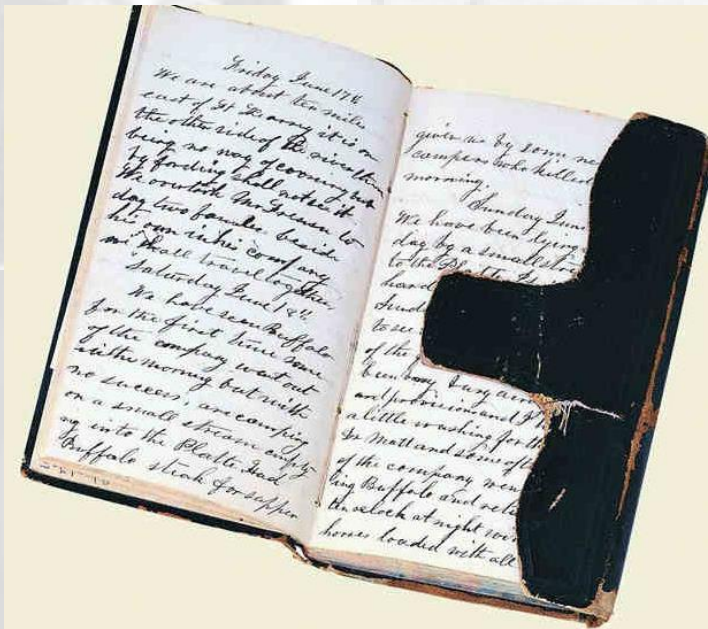 Friday June 17th
We are about ten miles
east of Ft Kearny it is on
the other side of the river there
being no way of crossing but
by fording shall not see it
We overtook Mr Freeman to
day two families beside
his own in his company
we shall travel together
Saturday June 18th
We have seen Buffalo
for the first time some
of the company went out
in the morning but with
no success are camping
on a small stream empty
ing into the Platte. had
Buffalo steak for supper
given us by some
campers who killed
morning.
Sunday June
We have been lying
day by a small
to the Platte
hand
to see
of the
been very busy
and provision and I
a little washing for
Dr Matt and some of
of the company wen
ling Buffalo and
ten oclock at night
horses loaded with all